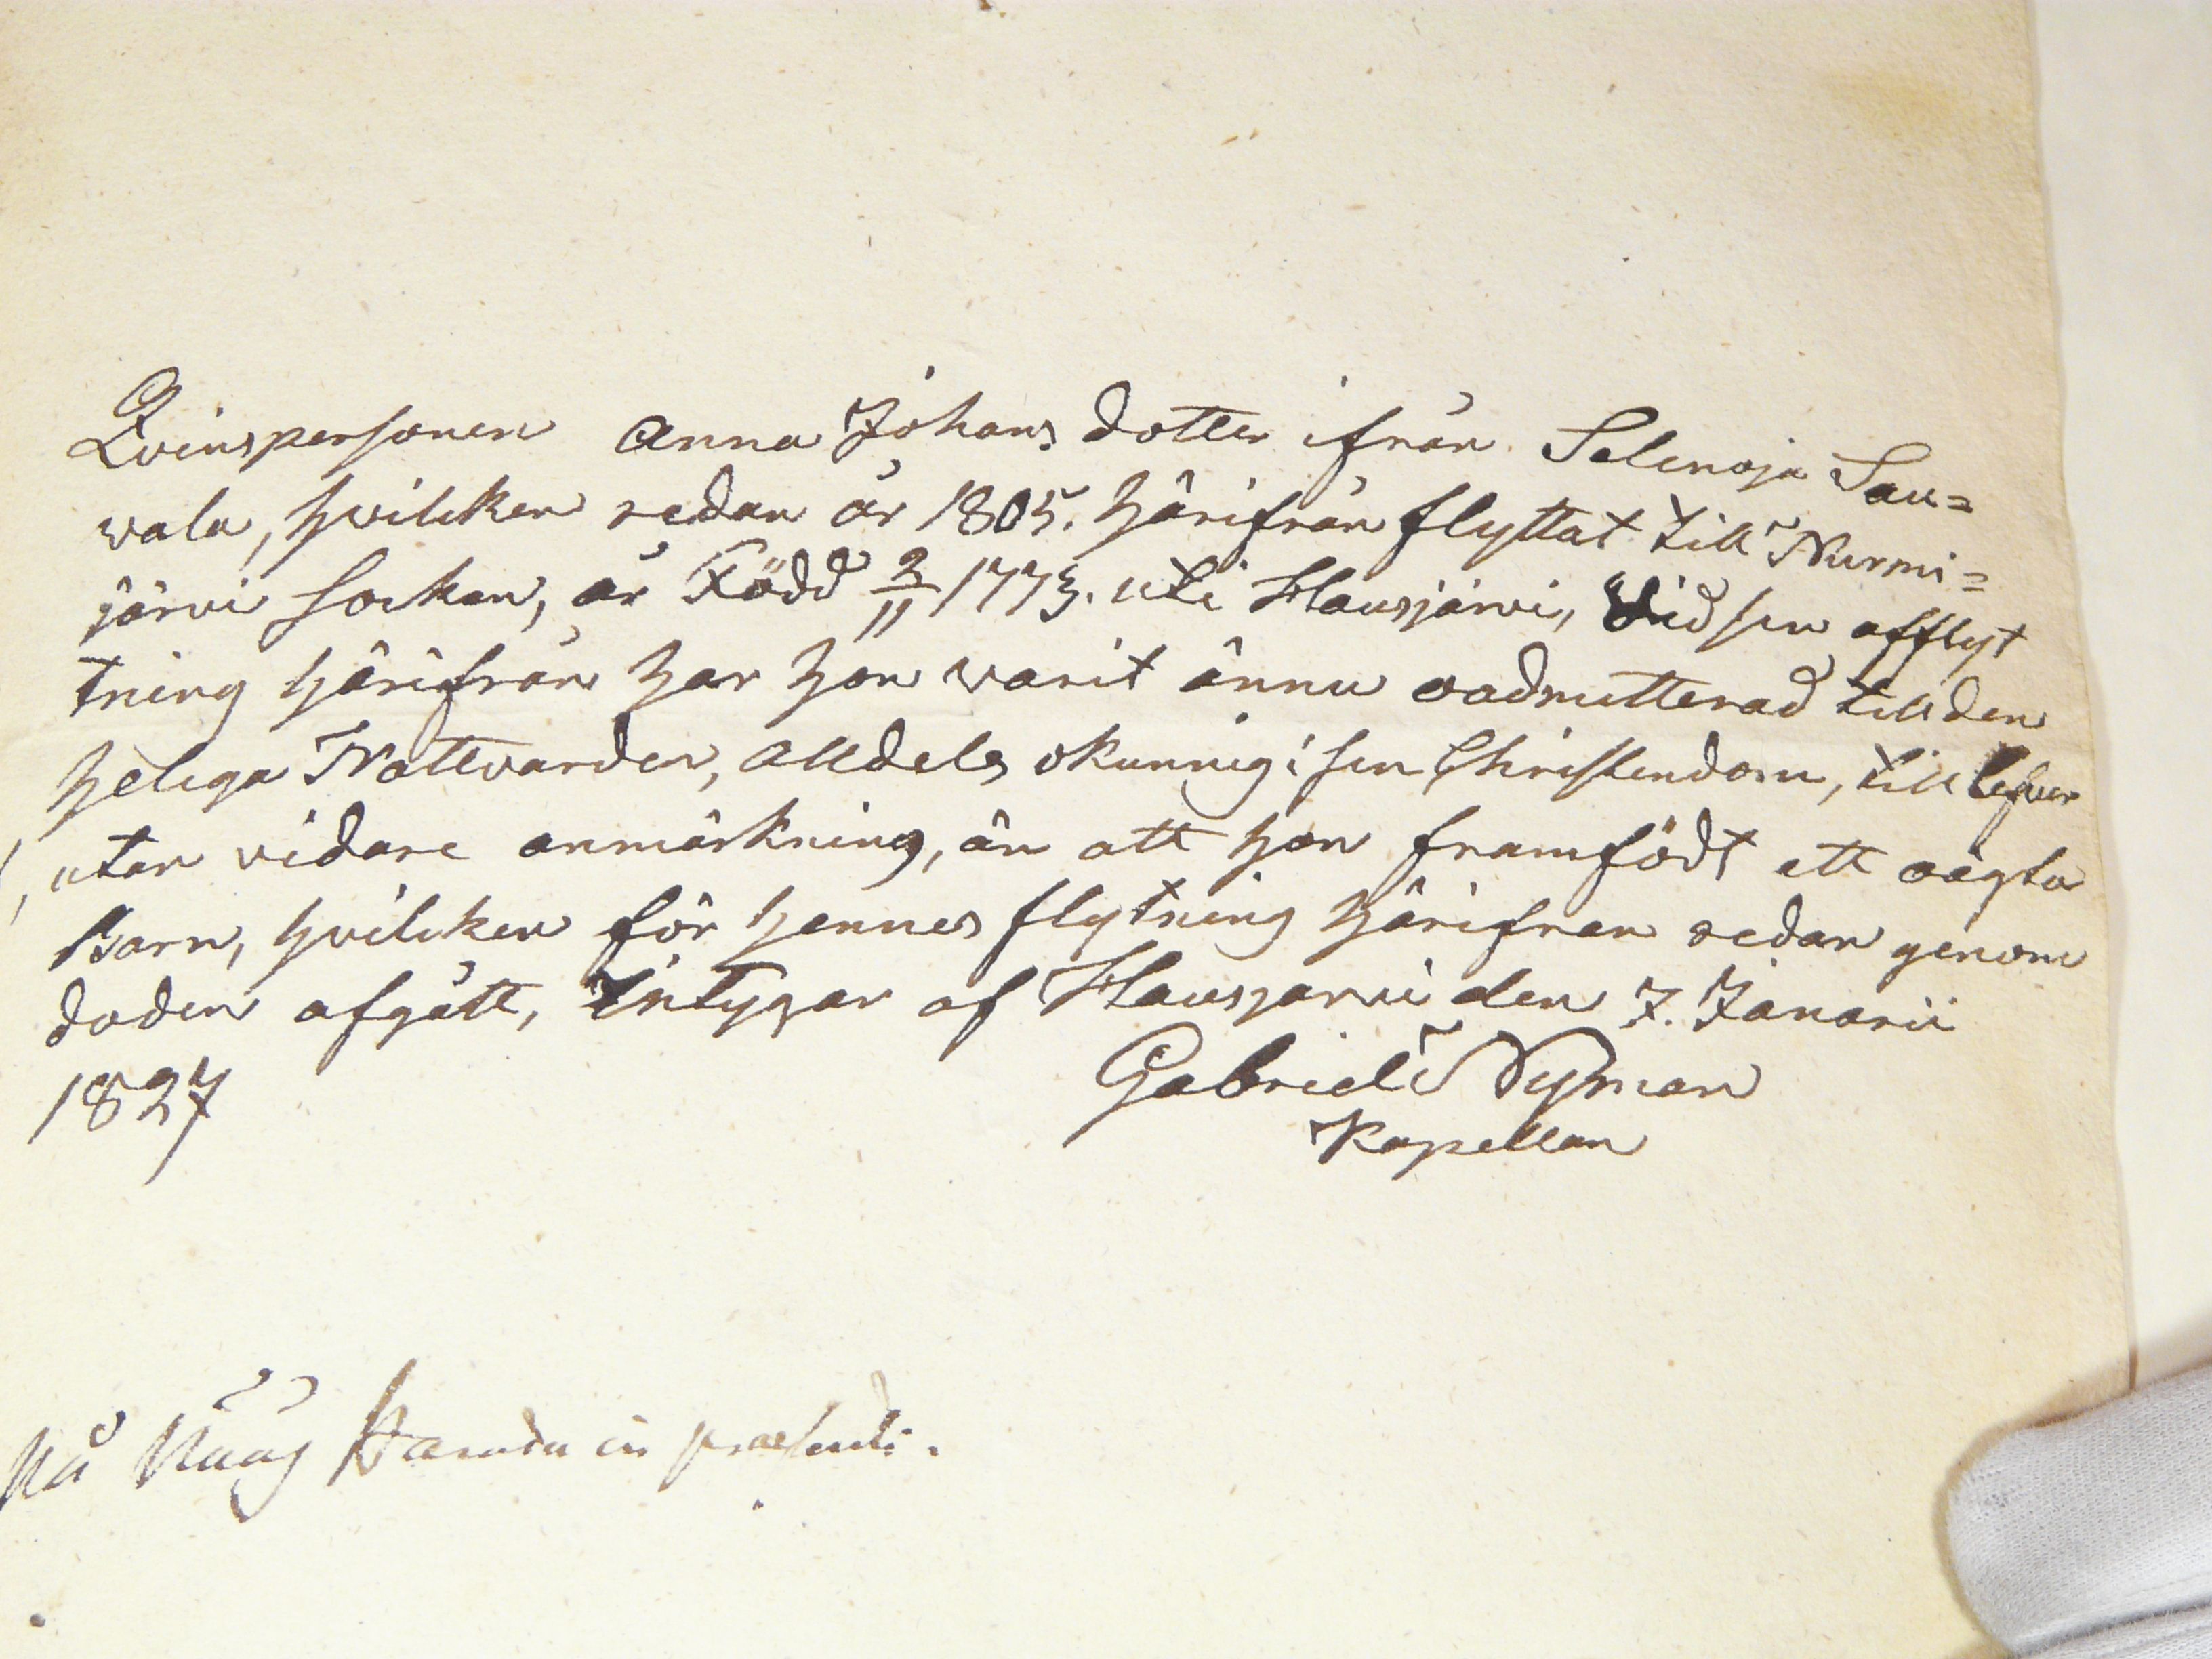 Qvinspersonen Anna Johans dotter ifrån Selenoja Sau=
vala, hvilcken sedan år 1805. härifrån flyttat till Nurmi=
järvi Socken, är Född 2/11 1773. uti Hausjärvi, Vid sin afflyt
tning härifrån har hon varit ännu oadmitterad till den
heliga Nattvarden, alldeles okunnig i sin Christendom, till lefver
, utan vidare anmärkning, än att hon framfödt ett oägta
Barn, hvilcken för hennes flytning härifrån sedan genom
döden afgått, Intygar af Hausjärvi den 7. Janarii
1827
Gabriel Nyman
Kapellan
in præsenti.